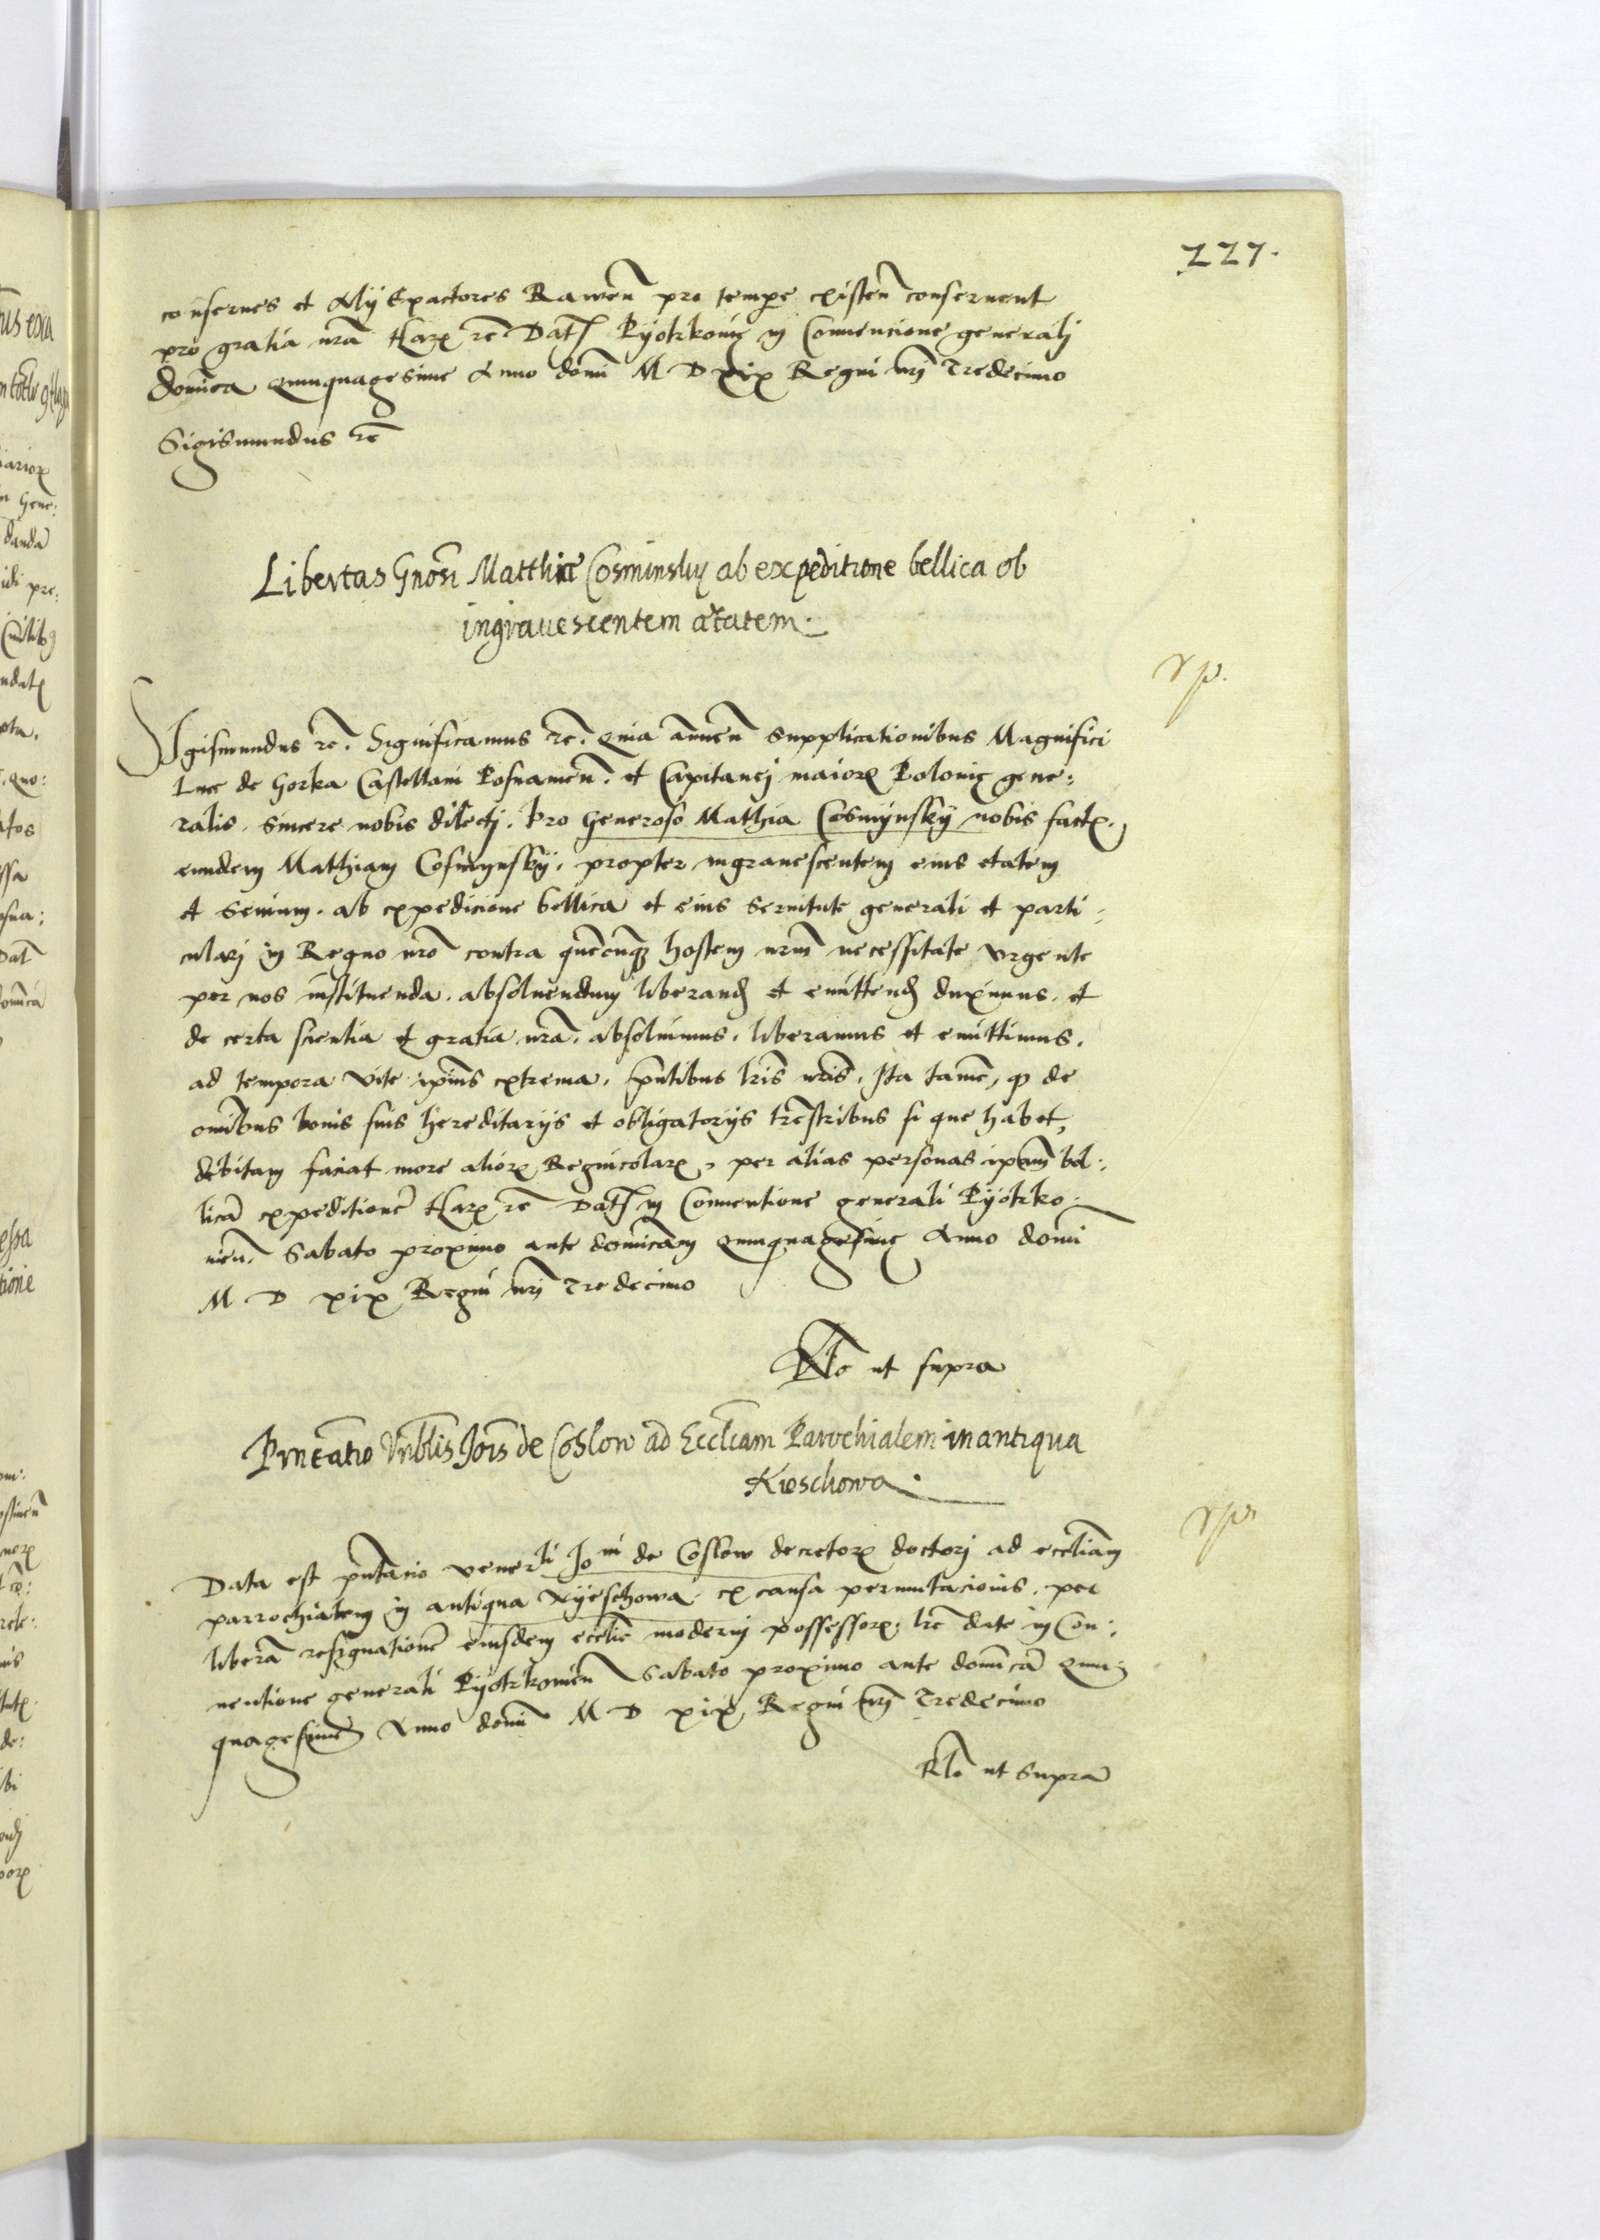 227.
conserves et Alij Exactores Rawen̄ pro tempe existen̄ conservent
pro gratia nrã Harꝝ rc̄ Datꝭ Pyotrkoviẹ in Convencione generalj
domica Quinquagesime Anno domi M D xix Regni nrj Tredecimo
Sigismundus rc̄
Libertas Gnosi Matthiæ Cosminskij ab expeditione bellica ob
ingravescentem ætatem.
rp.
SIgismundus rc̄. Significamus rc̄. Quia annuen̄ supplicationibus Magnifici
Luce de Gorka Castellani Posnanien̄. et Capitanej maiorꝭ Polonię gene:
ralis. sincere nobis dilectj. Pro Generoso Mathia Cosmynsky nobis factꝭ.,
eundem Mathiam Cosmynsky, propter ingravescentem eius etatem
et senium. ab expedicione bellica et eius servitute generali et parti:
cularj in Regno nrō contra quēcunqꝫ hostem nrm̄ necessitate urgente
per nos instituenda. absolvendum liberandꝭ et emittendꝭ duximus. et
de certa scientia et gratia nrā. absolvimus. liberamus et emittimus.
ad tempora vite ipius extrema. pntibus lris nris. Ita tamē, ꝙ de
omibus bonis suis hereditarijs et obligatorijs trestribus si que habet,
debitam faciat more aliorꝝ Regnicolarꝝ, per alias personas ipam bel:
licā expeditionē Harꝝ rc̄ Datꝭ in Conventione generali Pyotrko:
vien̄. Sabato proximo ante domicam Quinquagesimę Anno domi
M D xix Regni nrj Tredecimo
Rlō ut supra
Pntātio Vnblis Jois de Coslow ad Eccliam Parochialem in antiqua
Kieschowa.
rp.
Data est pntācio venerli Jonni de Coslow decretorꝝ doctorj ad eccliam
parrochialem in antiqua Xyeschowa. ex causa permutacionis. per
liberā resignationē eiusdem ecclie moderni possessorꝭ. lrē date in Con:
ventione generali Pyotrkovien̄ Sabato proximo ante domicā Quin:
quagesime Anno domi M D xix Regni nrj Tredecimo
Rlō ut supra